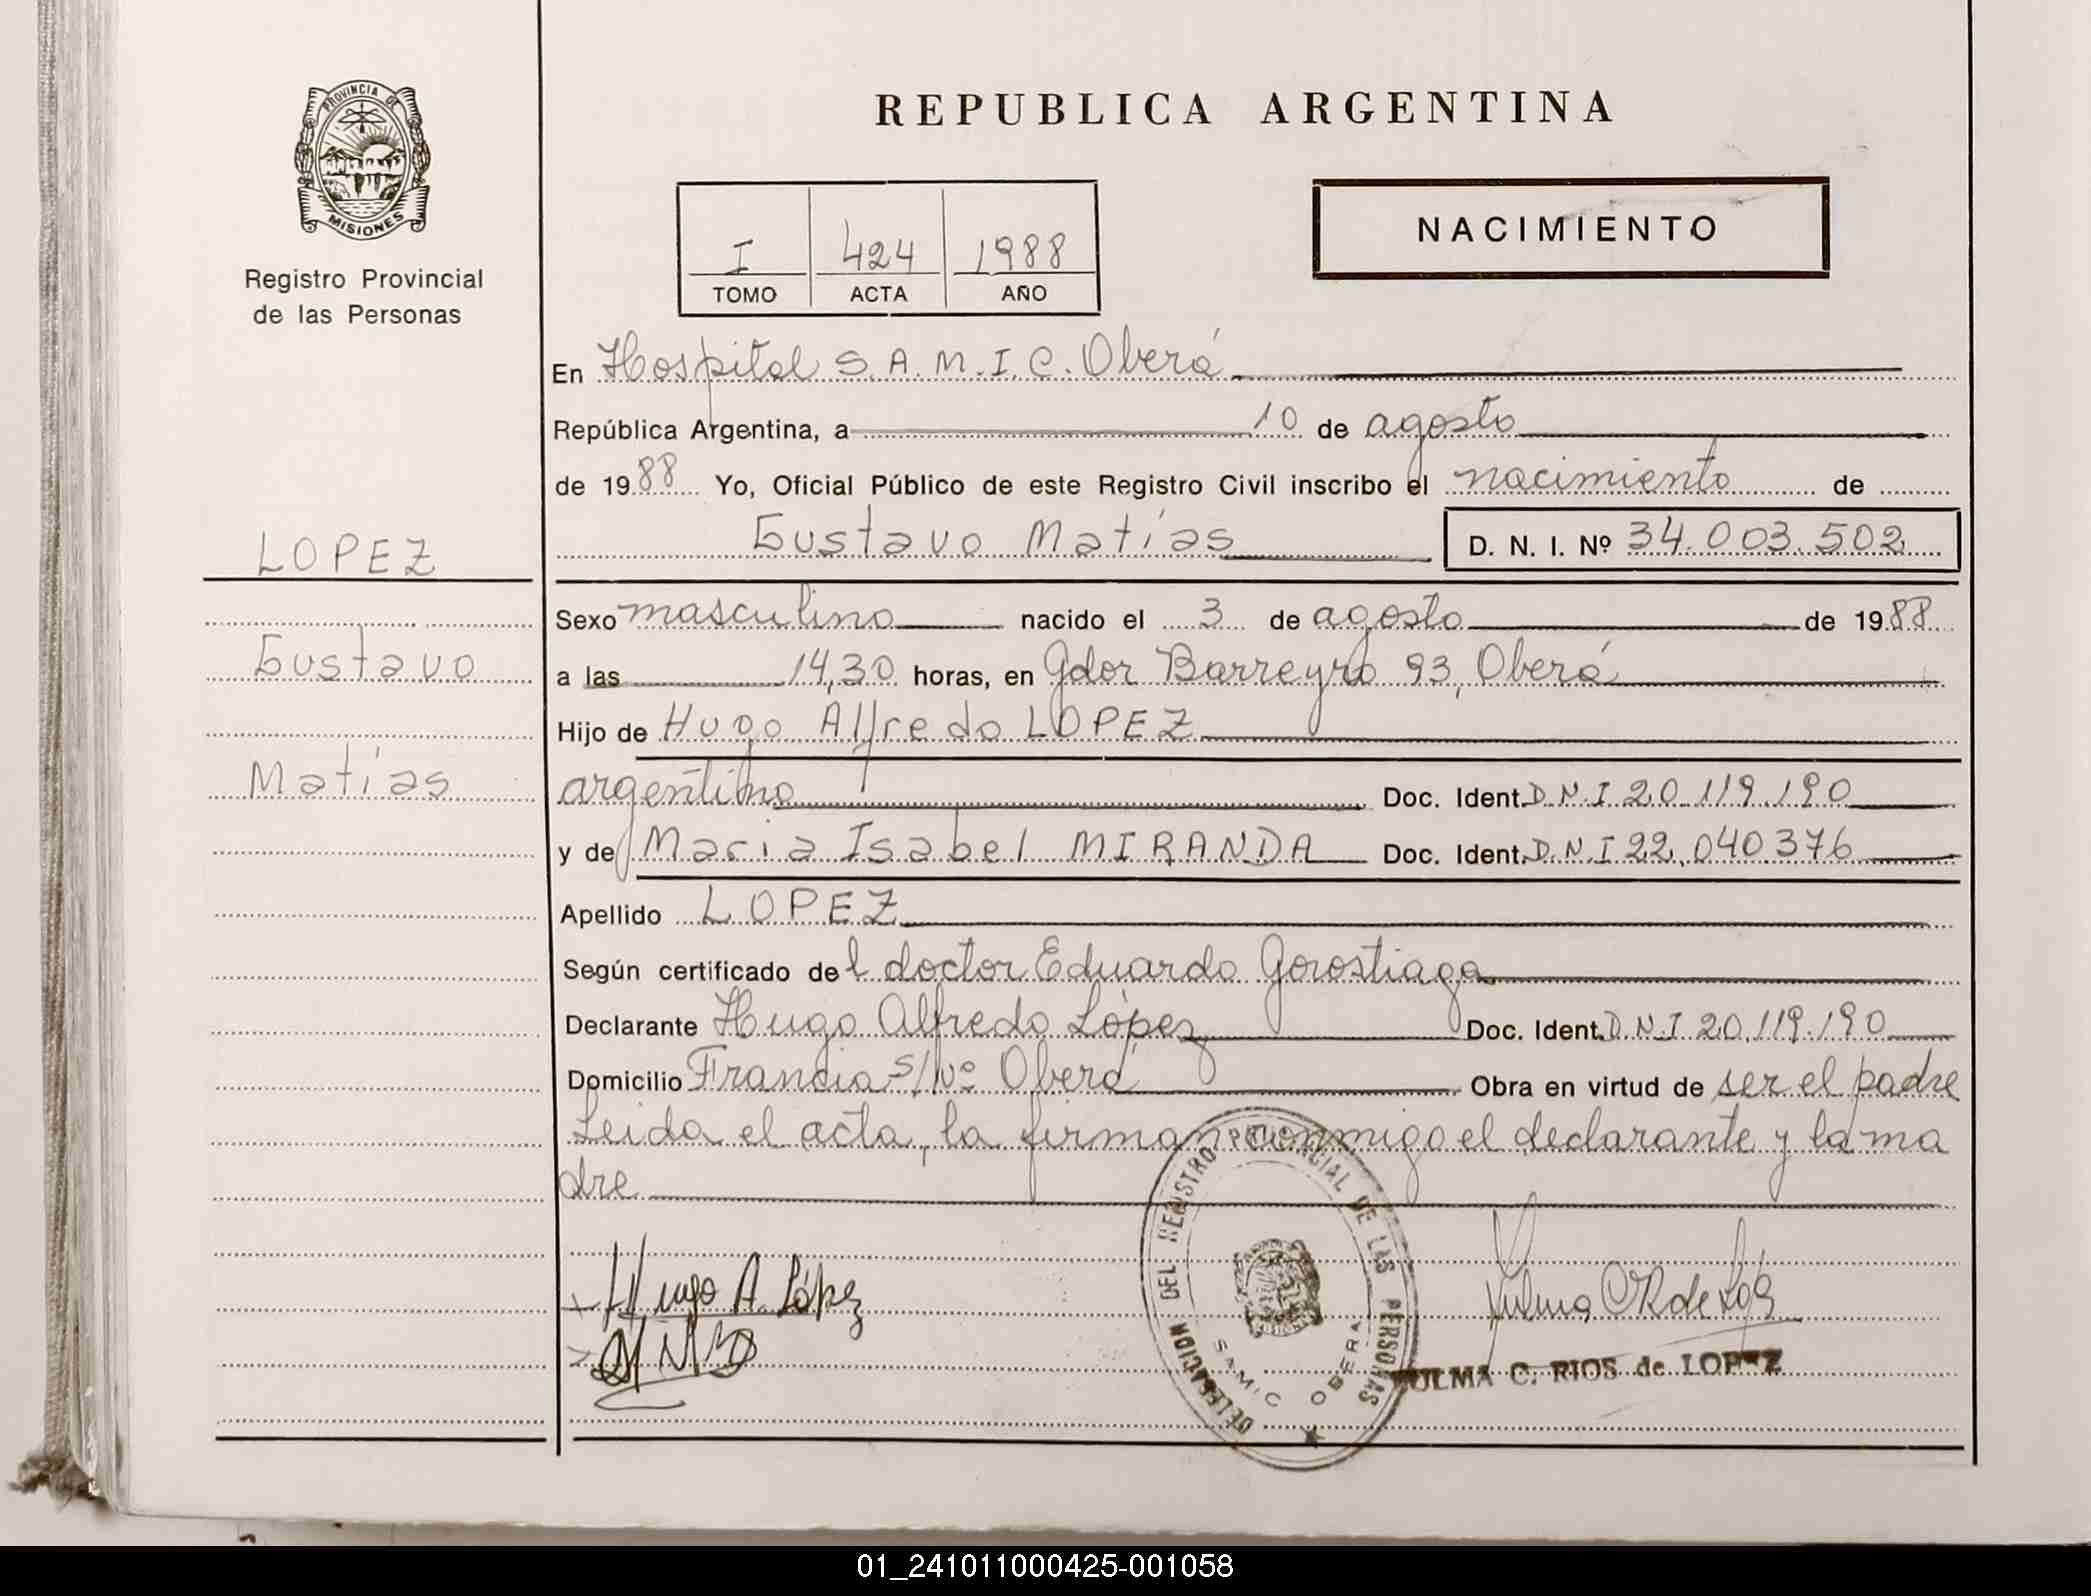 REPUBLICA ARGENTINA
PROVINCIA DE
MISIONES
Registro Provincial
de las Personas
I 424 1988
TOMO ACTA AÑO
NACIMIENTO
En Hospital S.A.M.I.C. Oberá
República Argentina, a 10 de agosto
de 1988 Yo, Oficial Público de este Registro Civil inscribo el nacimiento de
Gustavo Matías D. N. I. Nº 34.003.502
LOPEZ
Gustavo
Matías
Sexo masculino nacido el 3 de agosto de 1988
a las 14,30 horas, en Gdor Barreyro 93, Oberá
Hijo de Hugo Alfredo LOPEZ
argentino Doc. Ident. D.N.I 20.119.190
y de Maria Isabel MIRANDA Doc. Ident. D.N.I 22.040.376
Apellido LOPEZ
Según certificado del doctor Eduardo Gorostiaga
Declarante Hugo Alfredo López Doc. Ident. D.N.I 20.119.190
Domicilio Francia s/Nº Oberá Obra en virtud de ser el padre
Leida el acta, la firman conmigo el declarante y la ma
dre
Hugo A. López
DELEGACION DEL REGISTRO PROVINCIAL DE LAS PERSONAS
SAMIC OBERA
ZULMA C. RIOS de LOPEZ
01_241011000425-001058